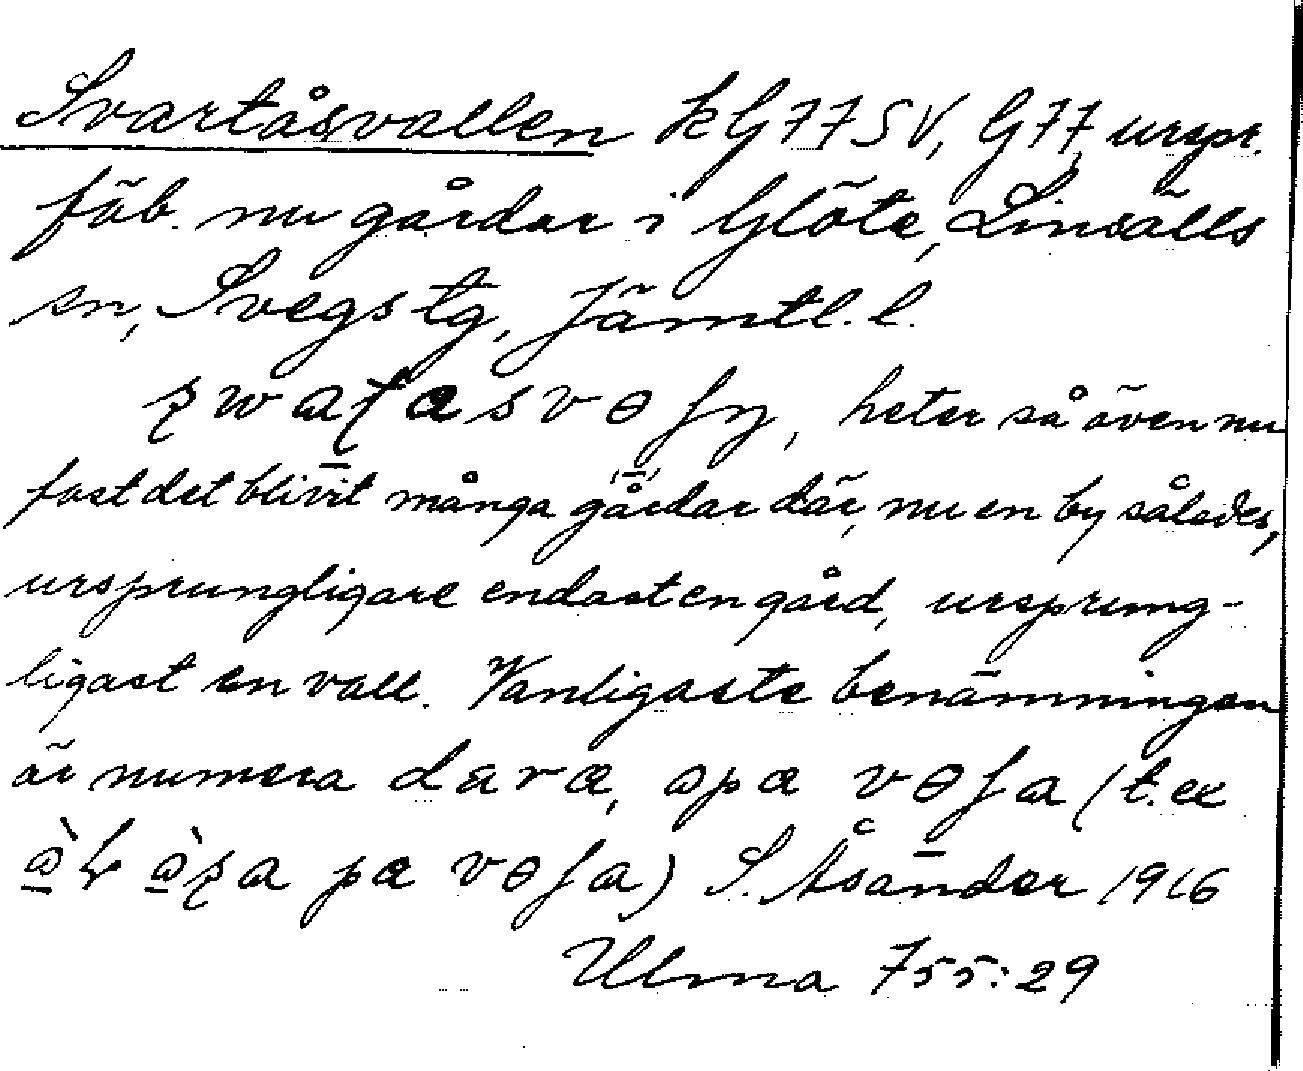 Svartåsvallen k G 77 SV, G 77, urspr.
fäb. nu gårdar i Glöte, Linsälls
sn, Svegs tg, Jämtl. l.
heter så även nu
fast det blivit många gårdar där, nu en by således,
ursprungligare endast en gård, ursprung-
ligast en vall. Vanligaste benämningen
är numera (t. ex
) S. Åsander 1916
Ulma 755:29